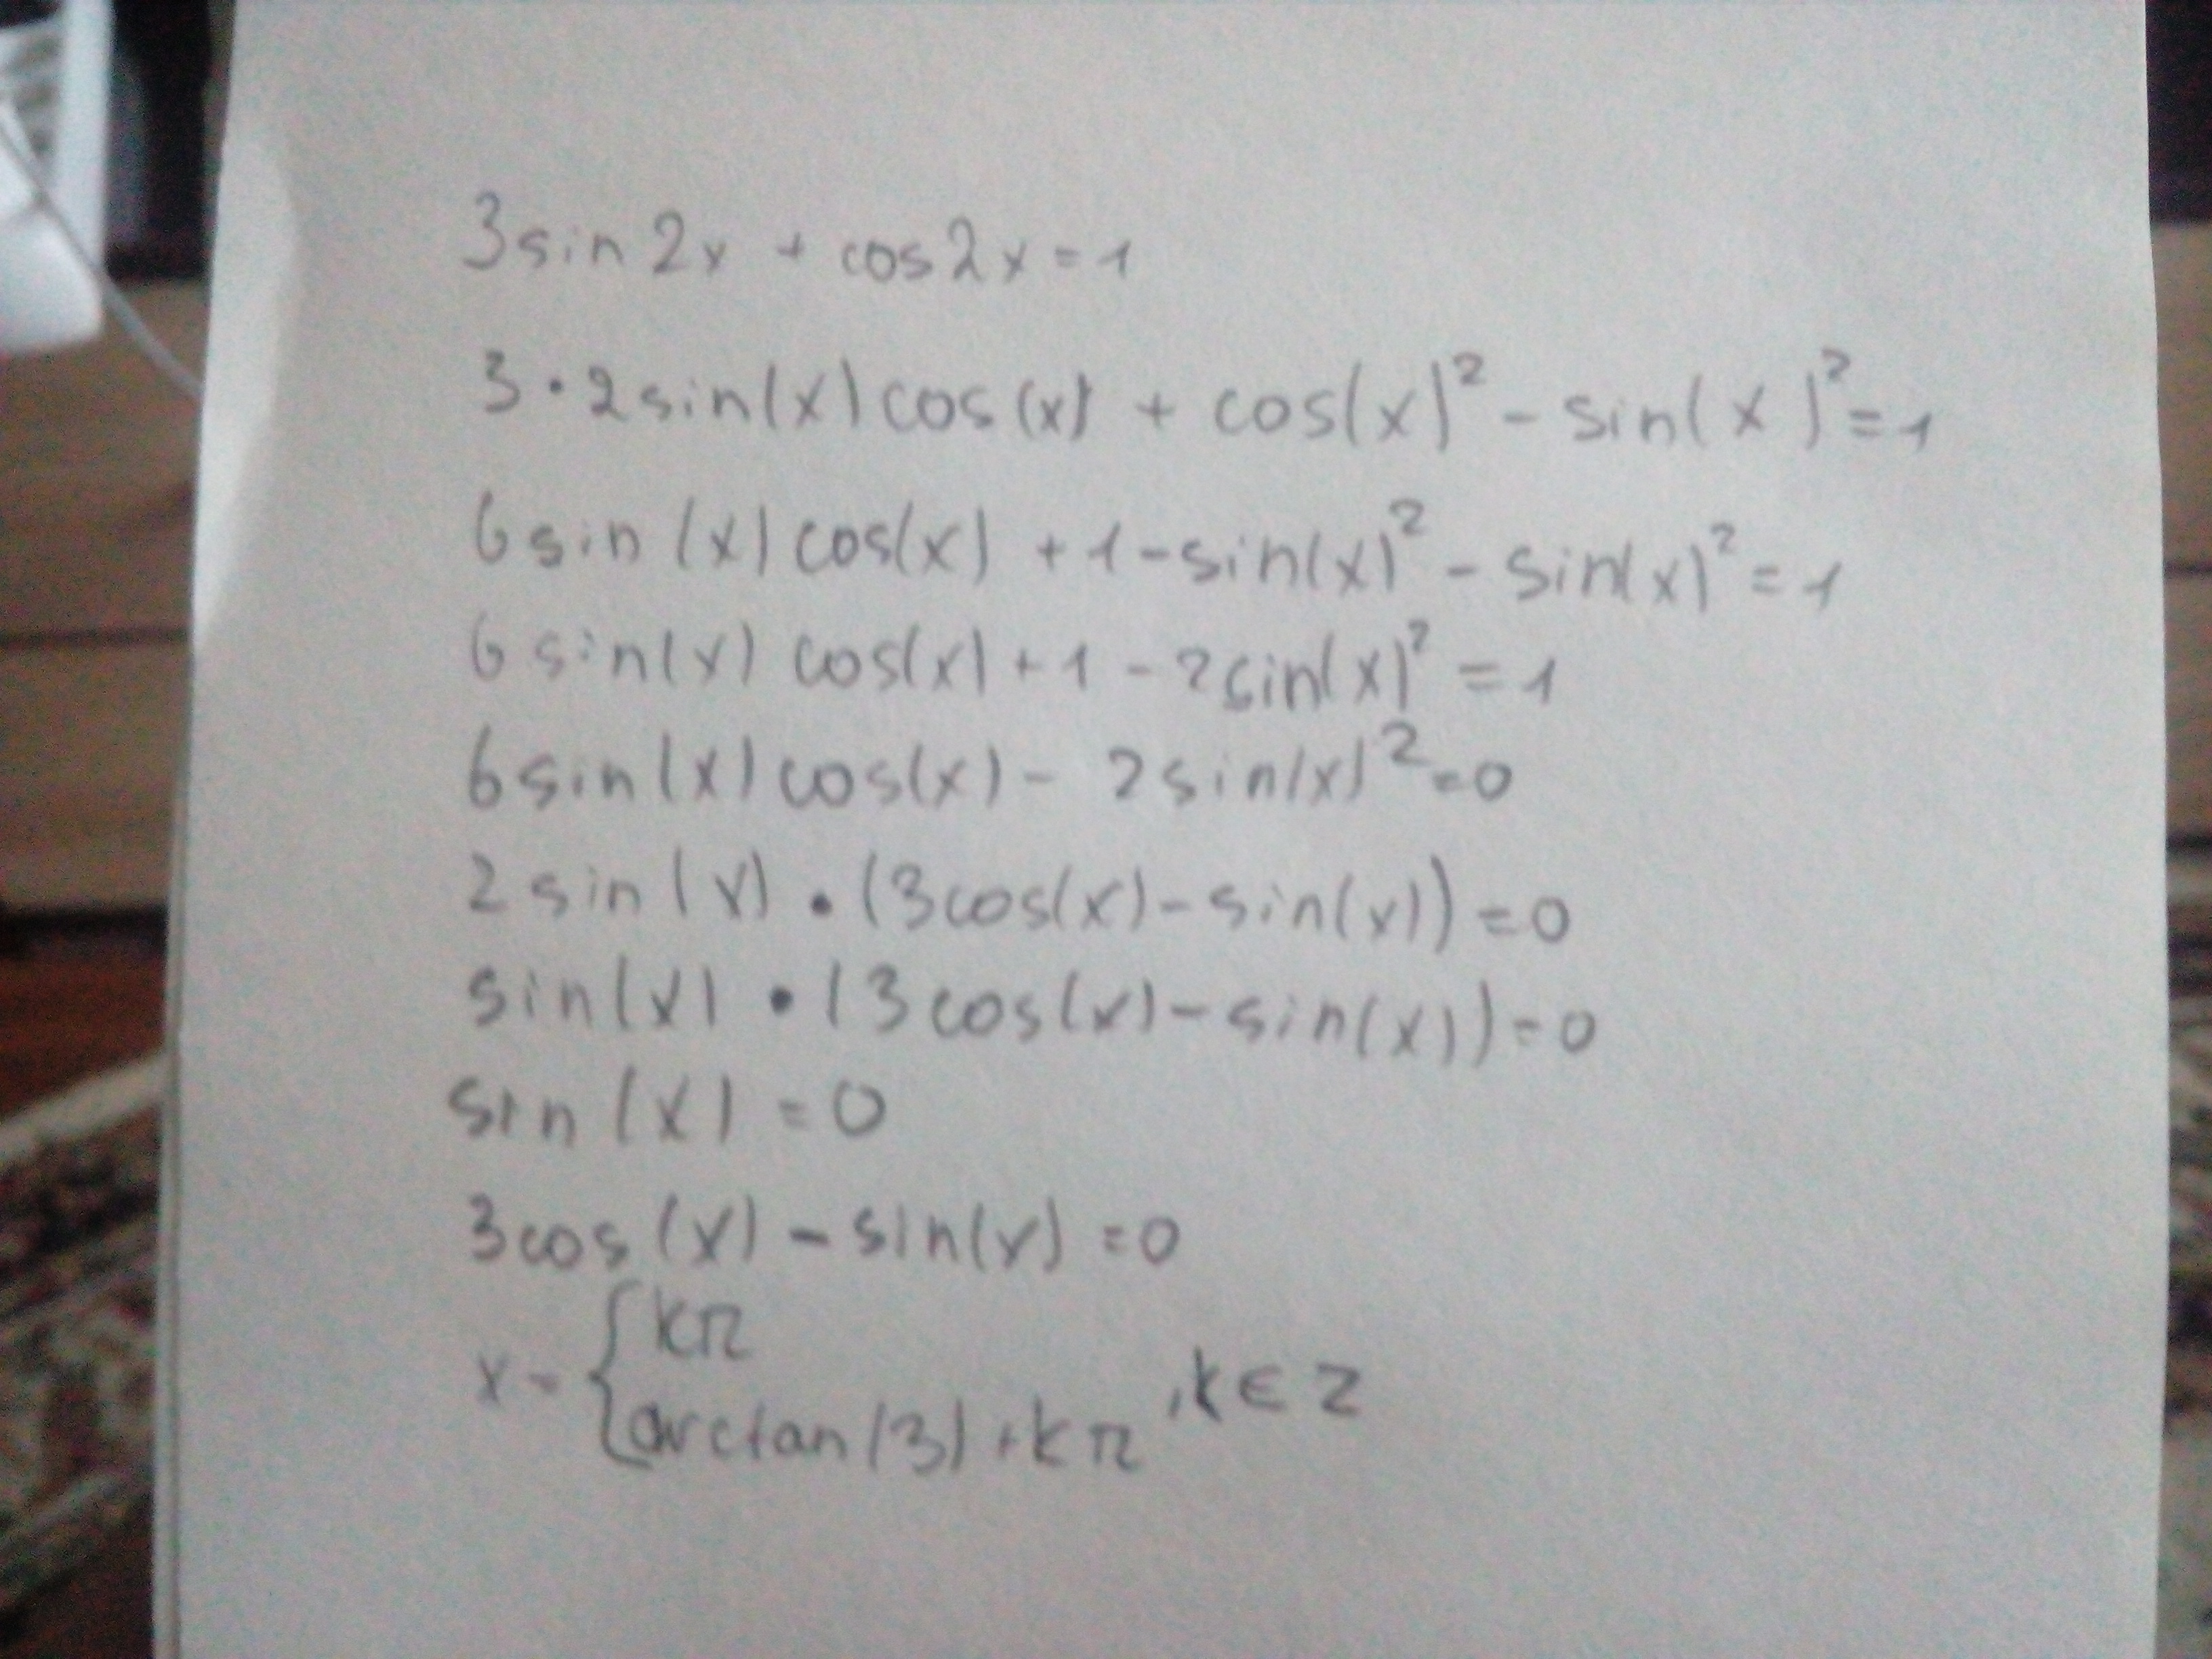 3sin2x + cos2x = 1
3·2sin(x)cos(x) + cos(x)² - sin(x)² = 1
6sin(x)cos(x) + 1 - sin(x)² - sin(x)² = 1
6sin(x)cos(x) + 1 - 2sin(x)² = 1
6sin(x)cos(x) - 2sin(x)² = 0
2sin(x)·(3cos(x) - sin(x)) = 0
sin(x)·(3cos(x) - sin(x)) = 0
sin(x) = 0
3cos(x) - sin(x) = 0
x = { kπ
arctan(3) + kπ , k ∈ Z